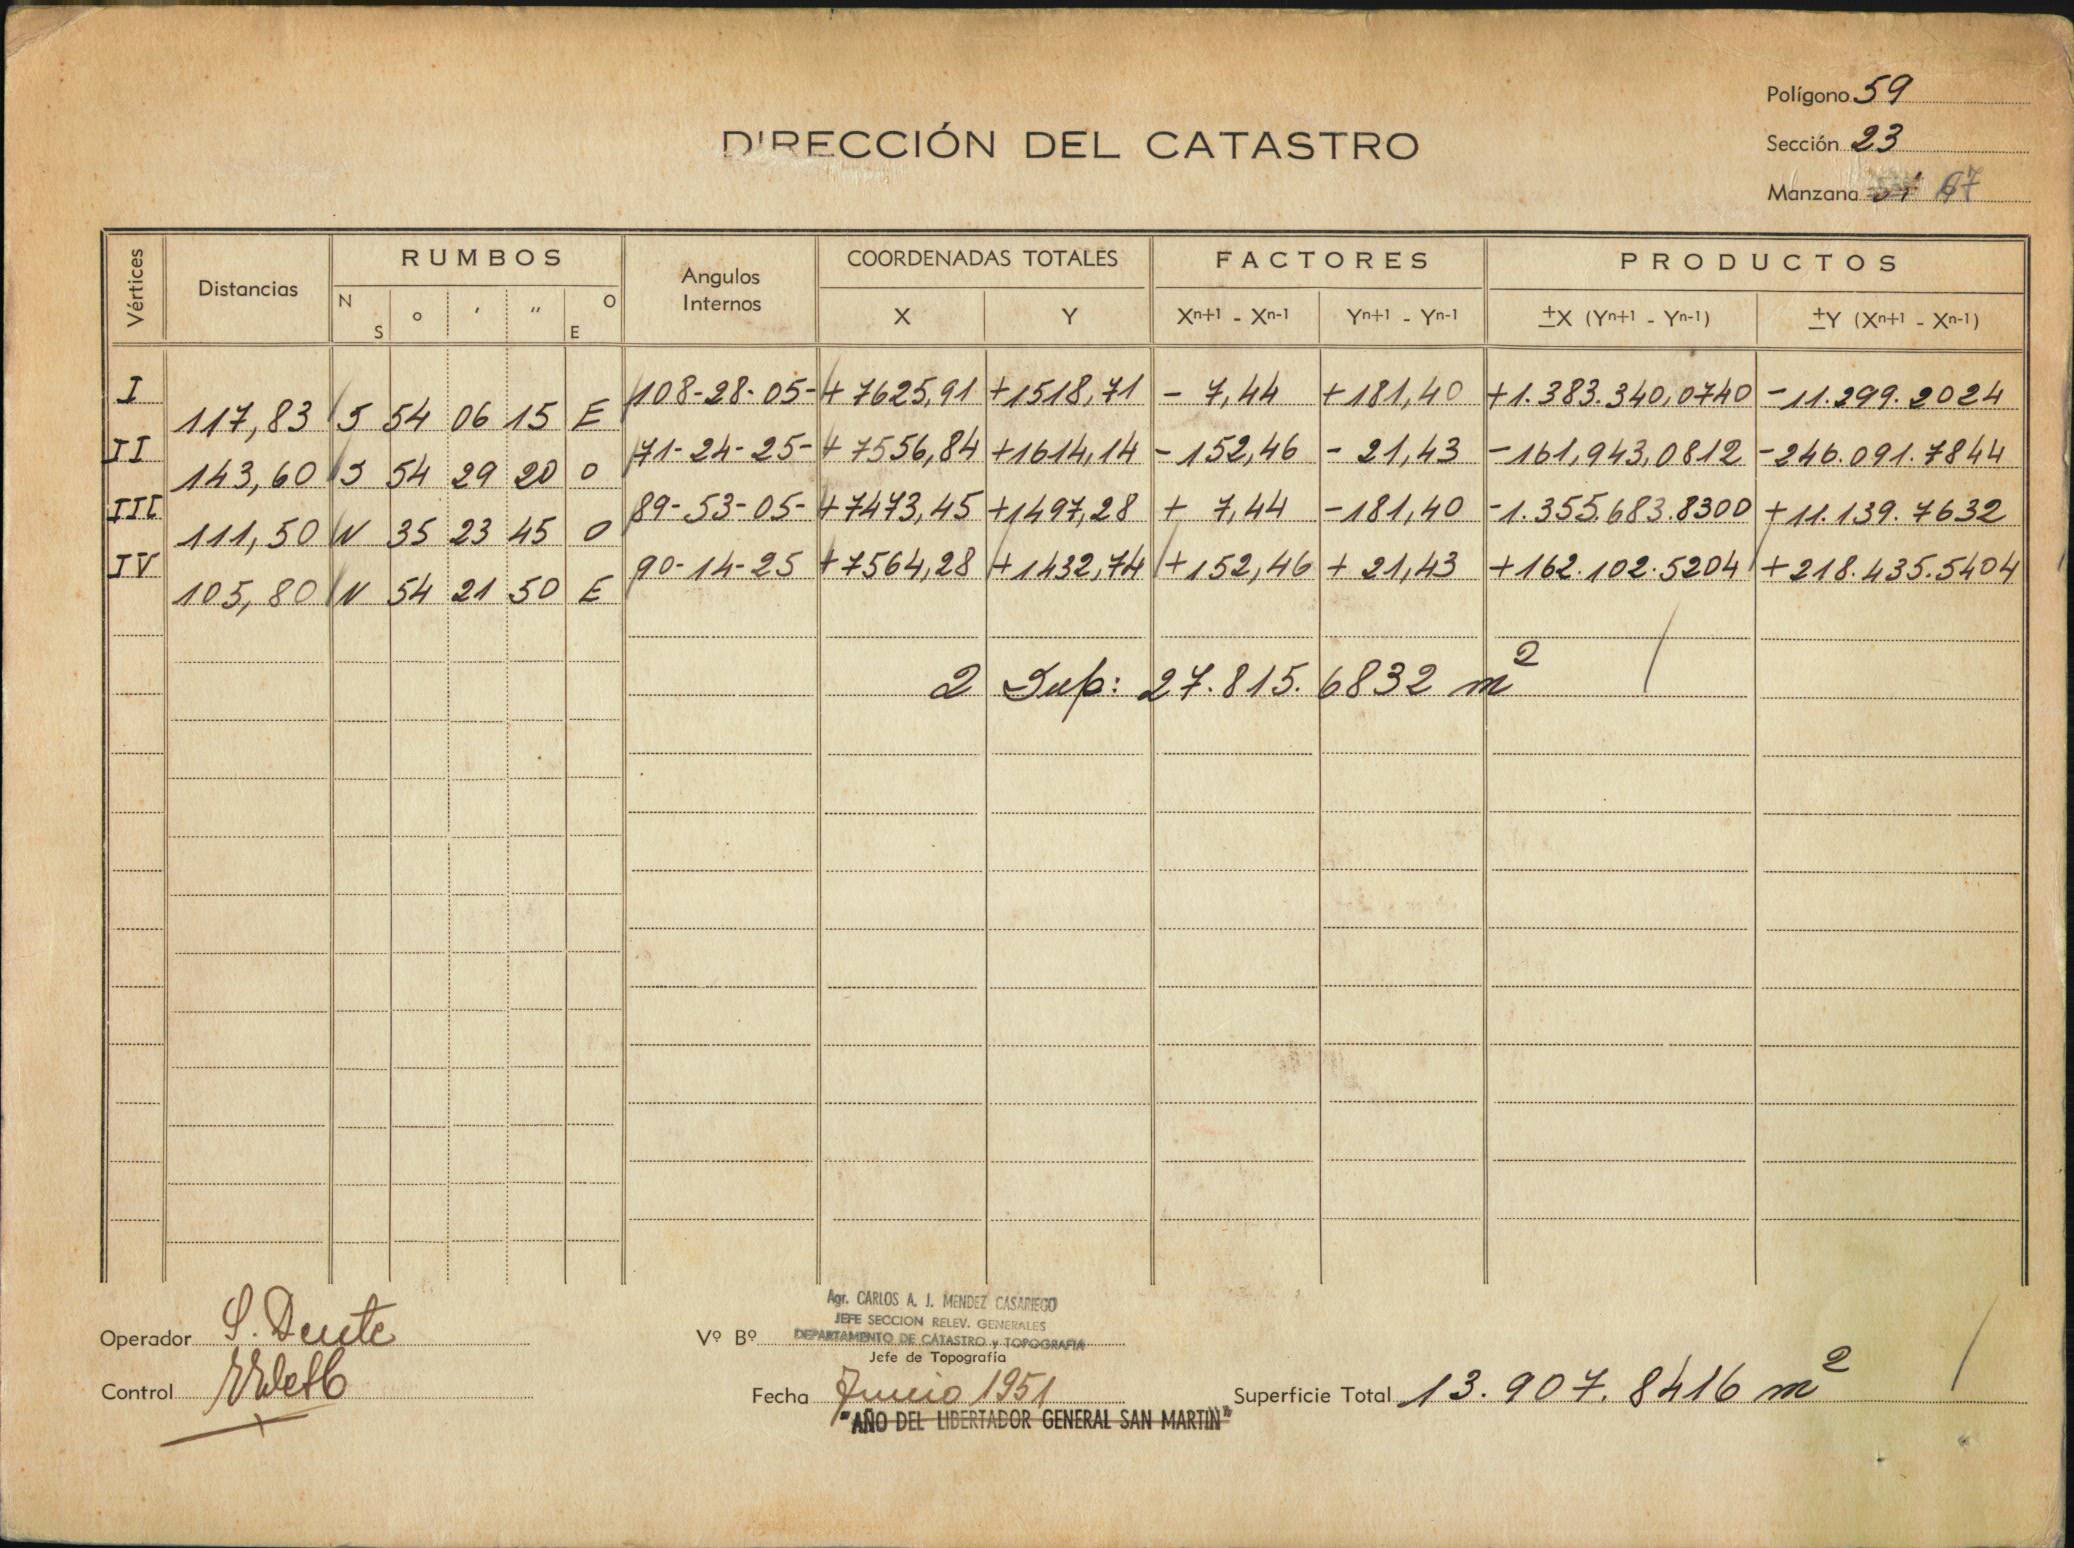 Polígono 59
DIRECCIÓN DEL CATASTRO
Sección 23
Manzana 67
Vértices Distancias RUMBOS Angulos Internos COORDENADAS TOTALES FACTORES PRODUCTOS
N S ° ′ ″ O E X Y Xn+1 - Xn-1 Yn+1 - Yn-1 ±X (Yn+1 - Yn-1) ±Y (Xn+1 - Xn-1)
I 108-28-05- +7625,91 +1518,71 - 7,44 +181,40 +1.383.340,0740 -11.299.2024
117,83 S 54 06 15 E
II 71-24-25- +7556,84 +1614,14 -152,46 - 21,43 -161,943,0812 -246.091.7844
143,60 S 54 29 20 O
III 89-53-05- +7473,45 +1497,28 + 7,44 -181,40 -1.355.683.8300 +11.139.7632
111,50 N 35 23 45 O
IV 90-14-25 +7564,28 +1432,74 +152,46 + 21,43 +162.102.5204 +218.435.5404
105,80 N 54 21 50 E
2 Sup: 27.815.6832 m²
Agr. CARLOS A. J. MENDEZ CASARIEGO
JEFE SECCION RELEV. GENERALES
Operador S. Dente Vº Bº DEPARTAMENTO DE CATASTRO y TOPOGRAFIA
Jefe de Topografía
Control Fecha Junio 1951 Superficie Total 13.907.8416 m²
"AÑO DEL LIBERTADOR GENERAL SAN MARTIN"